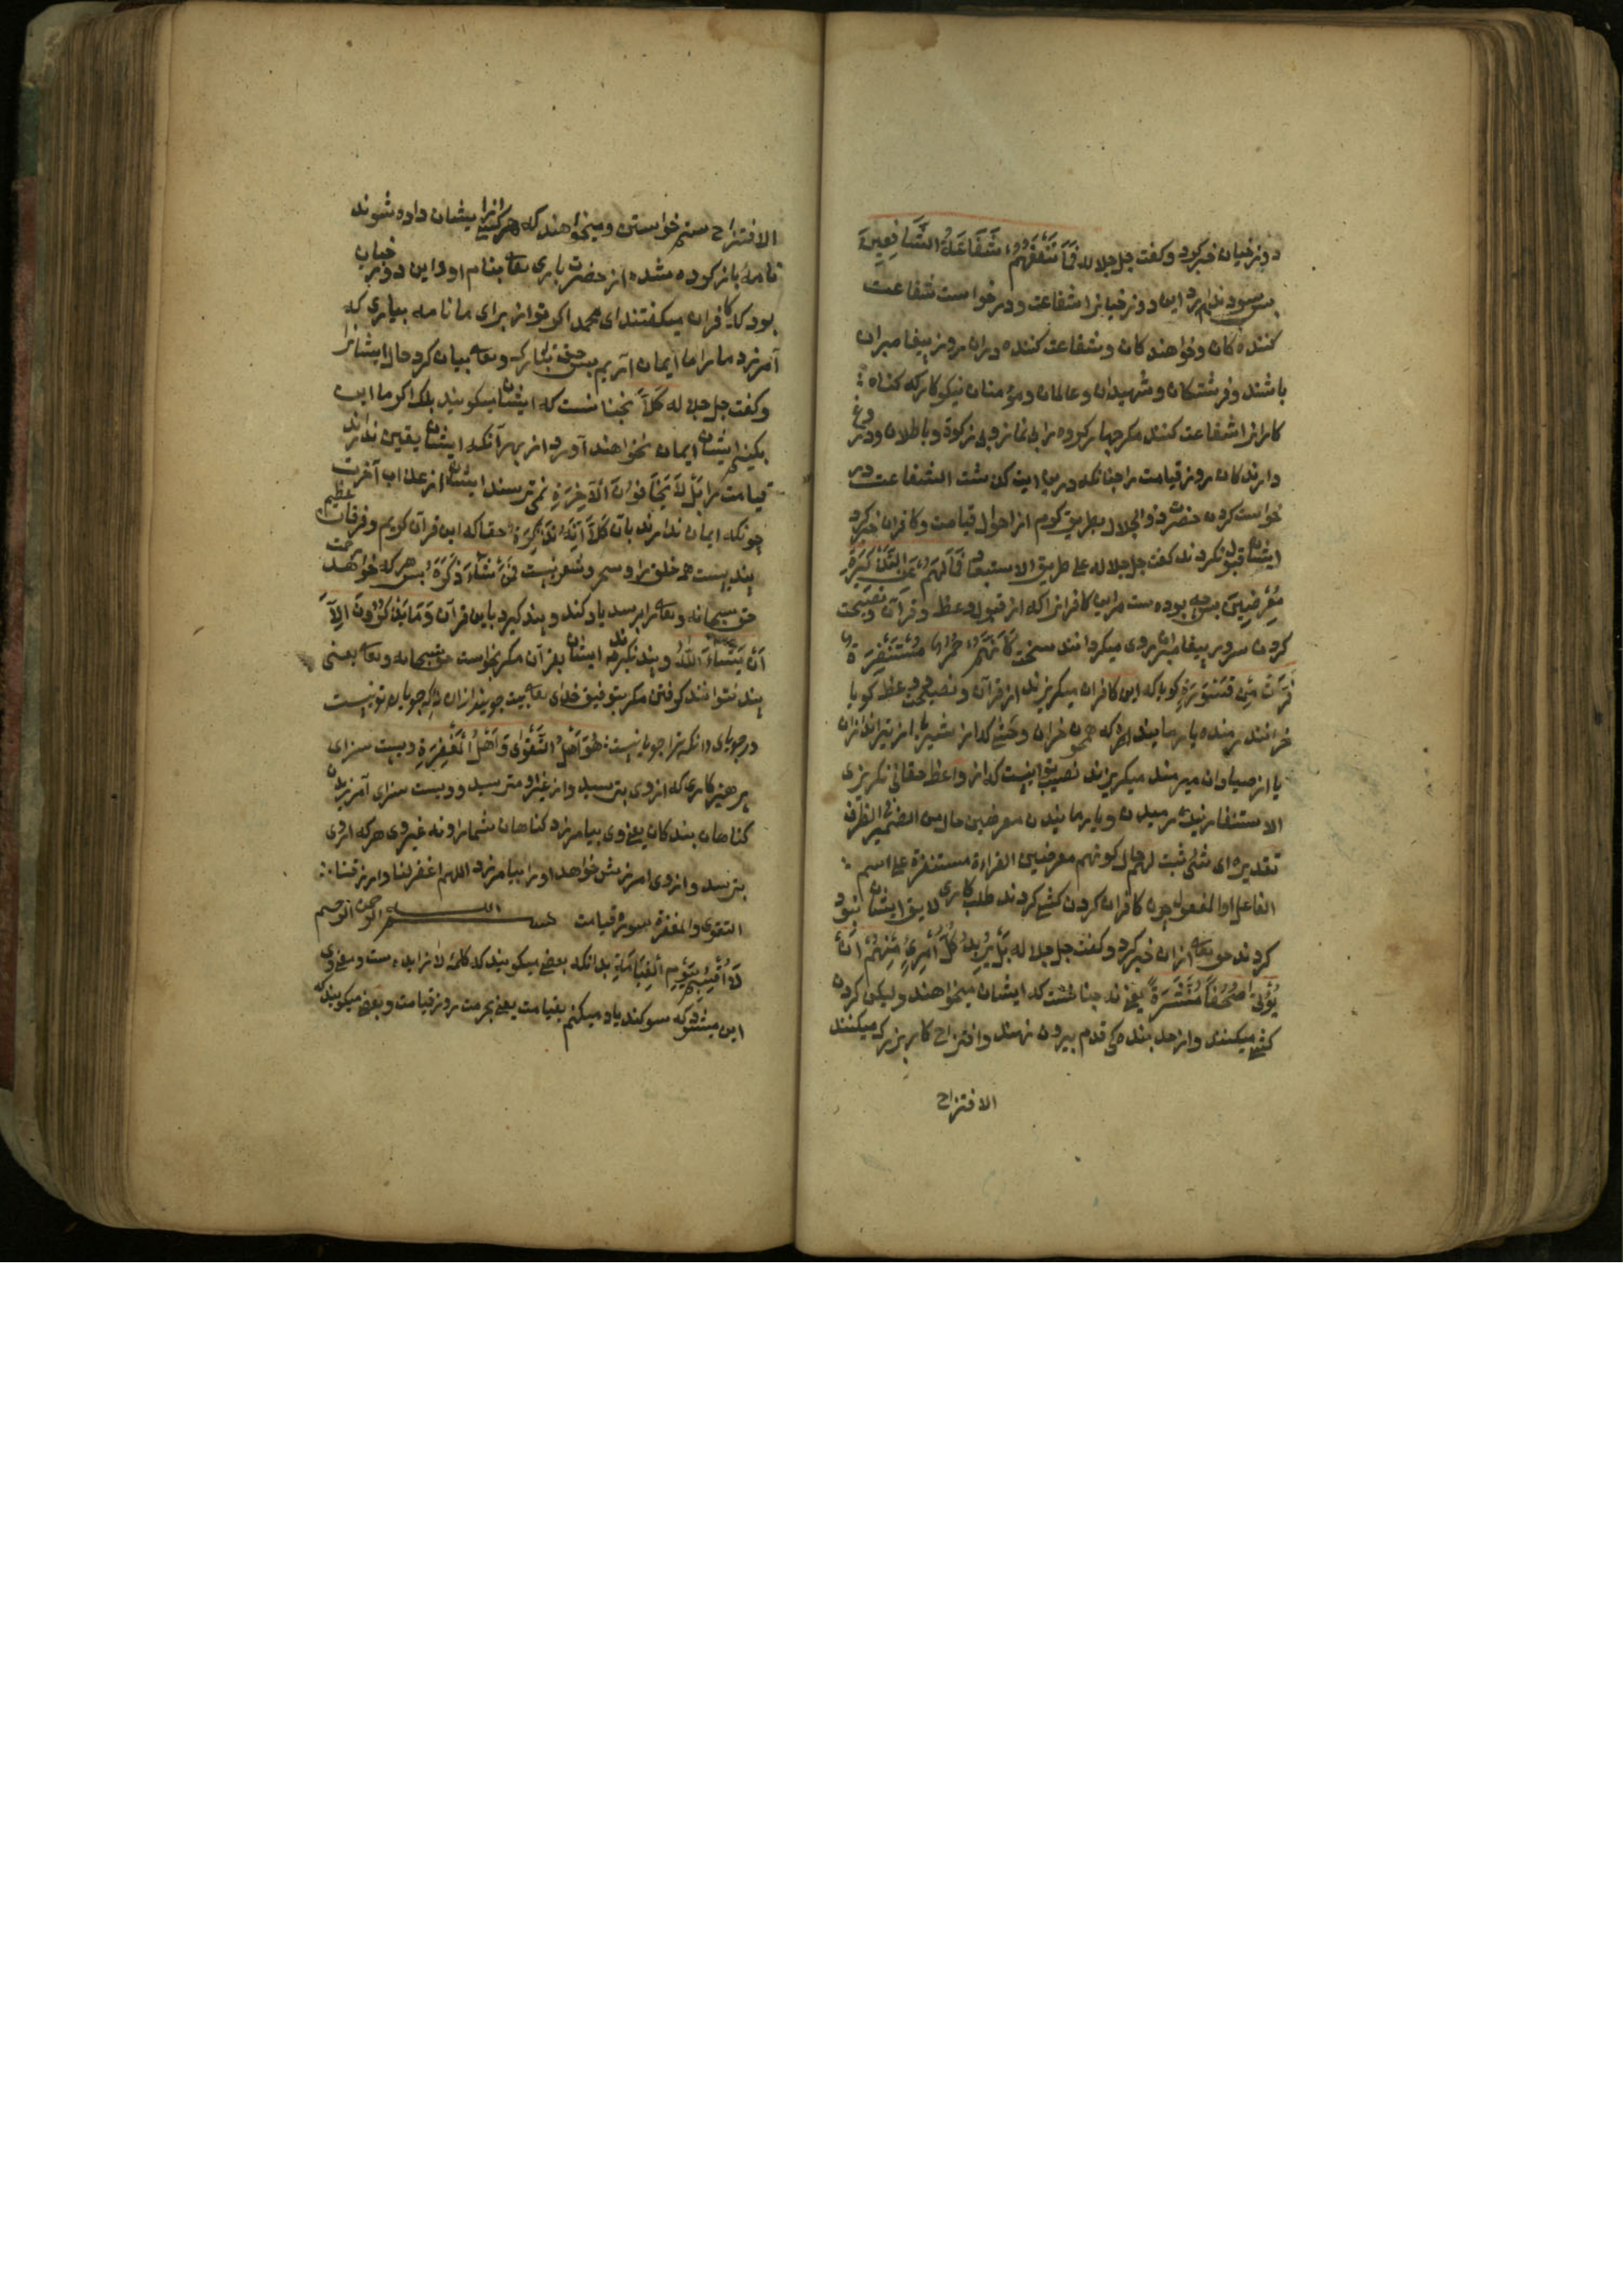 دوزخیان خبر کرد و کفت جل جلاله فَمَا تَنْفَعُهُمْ شَفَاعَةُ الشَّافِعِينَ
بس سود ندارد این دوزخیانرا شفاعت و درخواست شفاعت
کننده کان و خواهند کان و شفاعت کننده دران روز بیغامبران
باشند و فرشتکان و شهیدان و عالمان و مؤمنان نیکوکار که کناه
کارانرا شفاعت کنند مکر جهار کروه را بی نماز و بی زکوة و باطلان و دروغ
دارند کان روز قیامت را جنانکه درین ایت کذشت الشفاعت در
خواست کردن حضرت ذو الجلال بطریق کرم از احوال قیامت و کافران خبر کرد
ایشان قبول نکردند کفت جل جلاله علی طریق الاستبعاد فَمَا لَهُمْ عَنِ التَّذْكِرَةِ
مُعْرِضِينَ بس جه بوده ست مراین کافرانرا که از قبول وعظ و قرآن و نصیحت
کردن سرور بیغامبران روی میکردانند سخت كَأَنَّهُمْ حُمُرٌ مُسْتَنْفِرَةٌ
فَرَّتْ مِنْ قَسْوَرَةٍ کویا که این کافران میکریزند از قرآن و نصیحت و وعظ کویا
خرانند رمنده یا رمایند که همجون خران وحشی که از شیر یا از تیراندازان
یا از صیادان میرمند میکریزند نصیب اینست که از واعظ حقانی نکریزی
الاستنفار نیک رمیدن و یا رمانیدن معرضین حال من الضمیر فی الظرف
تقدیره ای شئ ثبت لهم حال کونهم معرضین القراءة مستنفرة علی اسم
الفاعل او المفعول جون کافران کردن کشی کردند طلب کاری لایق ایشان نبود
کردند حق تعالی ازان خبر کرد و کفت جل جلاله بَلْ يُرِيدُ كُلُّ امْرِئٍ مِنْهُمْ أَنْ
يُؤْتَى صُحُفًا مُنَشَّرَةً یعنی نه جنانست که ایشان میخواهند ولیکن کردن
کشی میکنند و از حد بنده کی قدم بیرون نهند و اقتراح کار بزرک میکنند
الاقتراح
الاقتراح ستم خواستن و میخواهند که هر کسی را از ایشان داده شوند
نامهٔ باز کوده شده از حضرت باری تعالی بنام او و این دوزخیان
بود که کافران میکفتند ای محمد اکر تو از برای ما نامه بیاری که
آمرزد مارا ما ایمان آریم بس حق تبارک و تعالی بیان کرد حال ایشانرا
و کفت جل جلاله كَلَّا نجنانست که ایشان میکویند بلک اکر ما این
بکنیم ایشان ایمان نخواهند آورد از بهر آنکه ایشان یقین ندارند
قیامت را بَلْ لَا يَخَافُونَ الْآخِرَةَ نمی ترسند ایشان از عذاب آخرت
جونکه ایمان ندارند بآن كَلَّا إِنَّهُ تَذْكِرَةٌ حقا که این قرآن کریم و فرقان عظیم
بندیست همه خلق را و سحر و شعر نیست فَمَنْ شَاءَ ذَكَرَهُ بس هر که خواهد رحمت
حق سبحانه و تعالی را برسد یاد کند و بند کیرد باین قرآن وَمَا يَذْكُرُونَ إِلَّا
أَنْ يَشَاءَ اللَّهُ و بند نکیرند ایشان بقرآن مکر بخواست حق سبحانه و تعالی یعنی
بند نتوانند کرفتن مکر بتوفیق خدای تعالی
در جویای دانکه ترا جویانیست هُوَ أَهْلُ التَّقْوَى وَأَهْلُ الْمَغْفِرَةِ ویست سزای
برهیزکاری که از وی بترسید و از غیر او مترسید و ویست سزای آمرزیدن
کناهان بند کان یعنی وی بیامرزد کناهان شمارا و نه غیر وی هر که از وی
بترسد و از وی امرزش خواهد او را بیامرزد اللهم اغفر لنا وارزقنا
التقوی والمغفرة سورة قیامت بسم الله الرحمن الرحیم
لَا أُقْسِمُ بِيَوْمِ الْقِيَامَةِ بدانکه بعضی میکویند که کلمهٔ لا زایده ست و معنی وی
این میشود که سوکند یاد میکنم بقیامت یعنی بحرمت روز قیامت و بعضی میکویند که